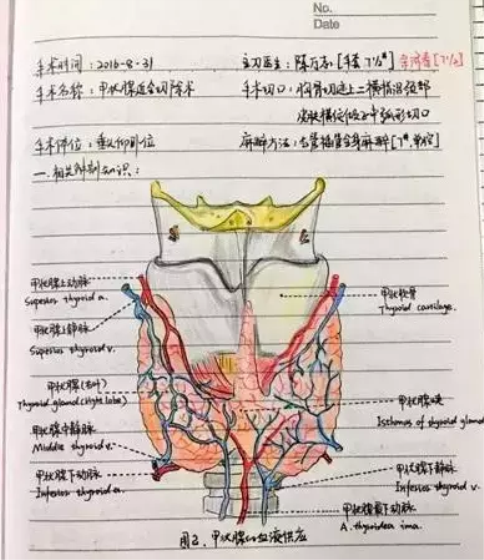 No.
Date
手术时间：2016-8-31 主刀医生：陈万志 [手套 7½#]
手术名称：甲状腺近全切除术 手术切口：胸骨切迹上二横指沿颈部
皮肤横纹做一弧形切口
手术体位：垂头仰卧位 麻醉方法：气管插管全身麻醉 [7#，单腔]
一、相关解剖知识：
甲状腺上动脉
Superior thyroid a.
甲状腺上静脉
Superior thyroid v.
甲状腺(右叶)
Thyroid gland (right lobe)
甲状腺中静脉
Middle thyroid v.
甲状腺下动脉
Inferior thyroid a.
甲状软骨
Thyroid cartilage.
甲状腺峡
Isthmus of thyroid gland
甲状腺下静脉
Inferior thyroid v.
甲状腺最下动脉
A. thyroidea ima.
图2、甲状腺的血液供应